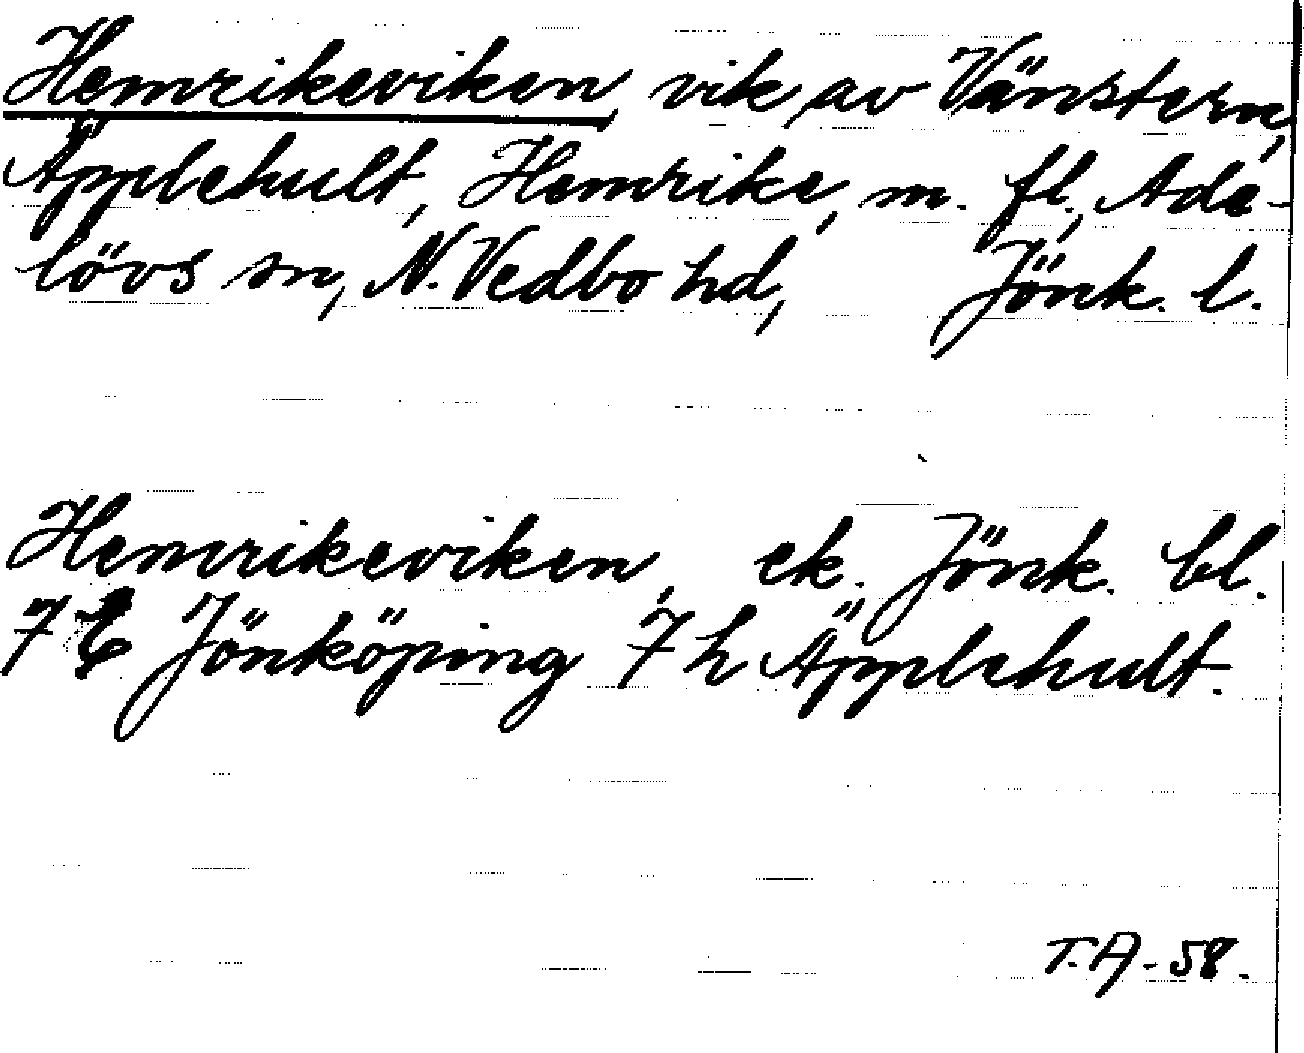 Hemrikeviken, vik av Vänstern,
Äpplehult, Hemrike, m. fl., Ade-
lövs sn, N. Vedbo hd, Jönk. l.
Hemrikeviken, ek. Jönk. bl.
7 E Jönköping 7 h Äpplehult.
T.A-58.